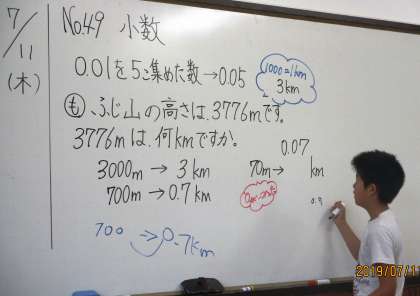 7/11
(木)
No.49 小数
0.01を5こ集めた数→0.05
1000=1km
3km
も、ふじ山の高さは、3776mです。
3776mは、何kmですか。
0.07
3000m → 3km
70m→ km
700m → 0.7km
0.9
700 → 0.7km
2019/07/11